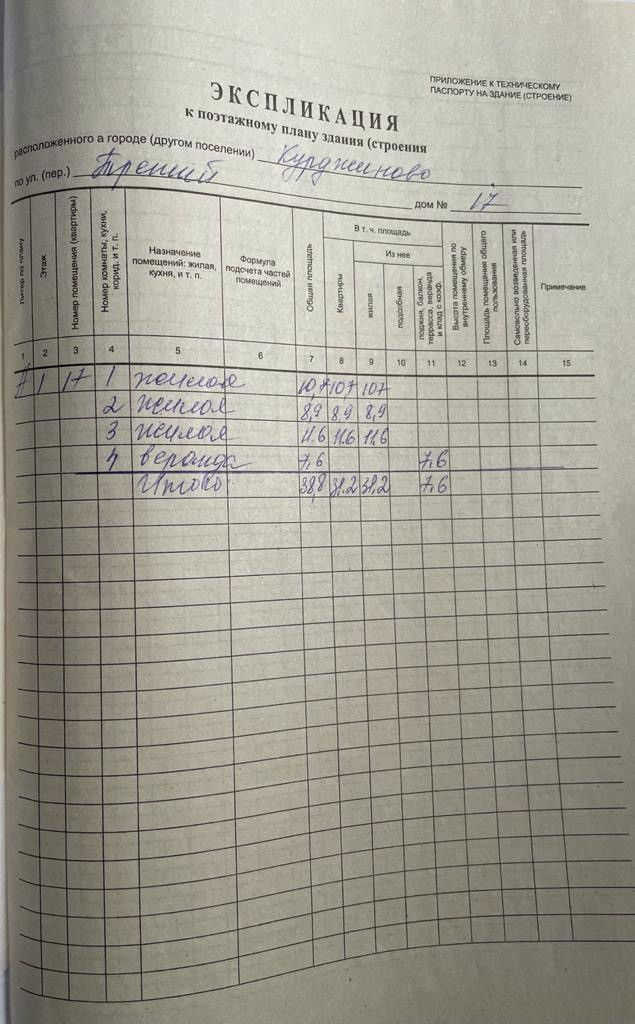 ПРИЛОЖЕНИЕ К ТЕХНИЧЕСКОМУ
ПАСПОРТУ НА ЗДАНИЕ (СТРОЕНИЕ)
ЭКСПЛИКАЦИЯ
к поэтажному плану здания (строения
расположенного в городе (другом поселении) Курджиново
по ул. (пер.)
дом № 17
Литер по плану
Этаж
Номер помещения (квартиры)
Номер комнаты, кухни, корид. и т. п.
Назначение помещений: жилая, кухня, и т. п.
Формула подсчета частей помещений
Общая площадь
В т. ч. площадь
Квартиры
Из нее
жилая
подсобная
лоджия, балкон, терраса, веранда и клад с коэф.
Высота помещения по внутреннему обмеру
Площадь помещения общего пользования
Самовольно возведенная или переоборудованная площадь
Примечание
1 2 3 4 5 6 7 8 9 10 11 12 13 14 15
1 17 1 жилая 10,7 10,7 10,7
2 жилая 8,9 8,9 8,9
3 жилая 11.6 11.6 11,6
4 веранда 7,6 7,6
Итого 38,8 31.2 31,2 7,6